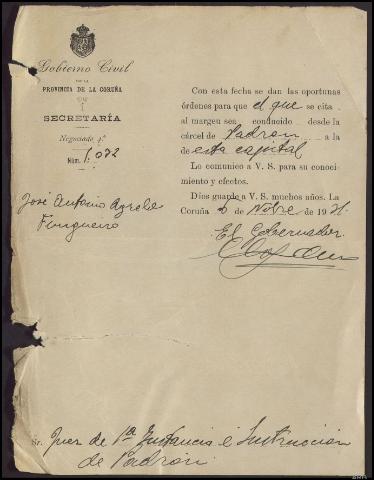 Gobierno Civil
DE LA
PROVINCIA DE LA CORUÑA
SECRETARÍA
Negociado 4º
Núm. 1.072
José Antonio Agrelo
Con esta fecha se dan las oportunas
órdenes para que el que se cita
al margen sea conducido desde la
cárcel de Padron a la
de esta capital
Lo comunico a V. S. para su conoci-
miento y efectos.
Dios guarde a V. S. muchos años. La
Coruña de Nobre de 19
El Gobernador
Sr. Juez de 1ª Instancia é Instrucción
de Padrón.